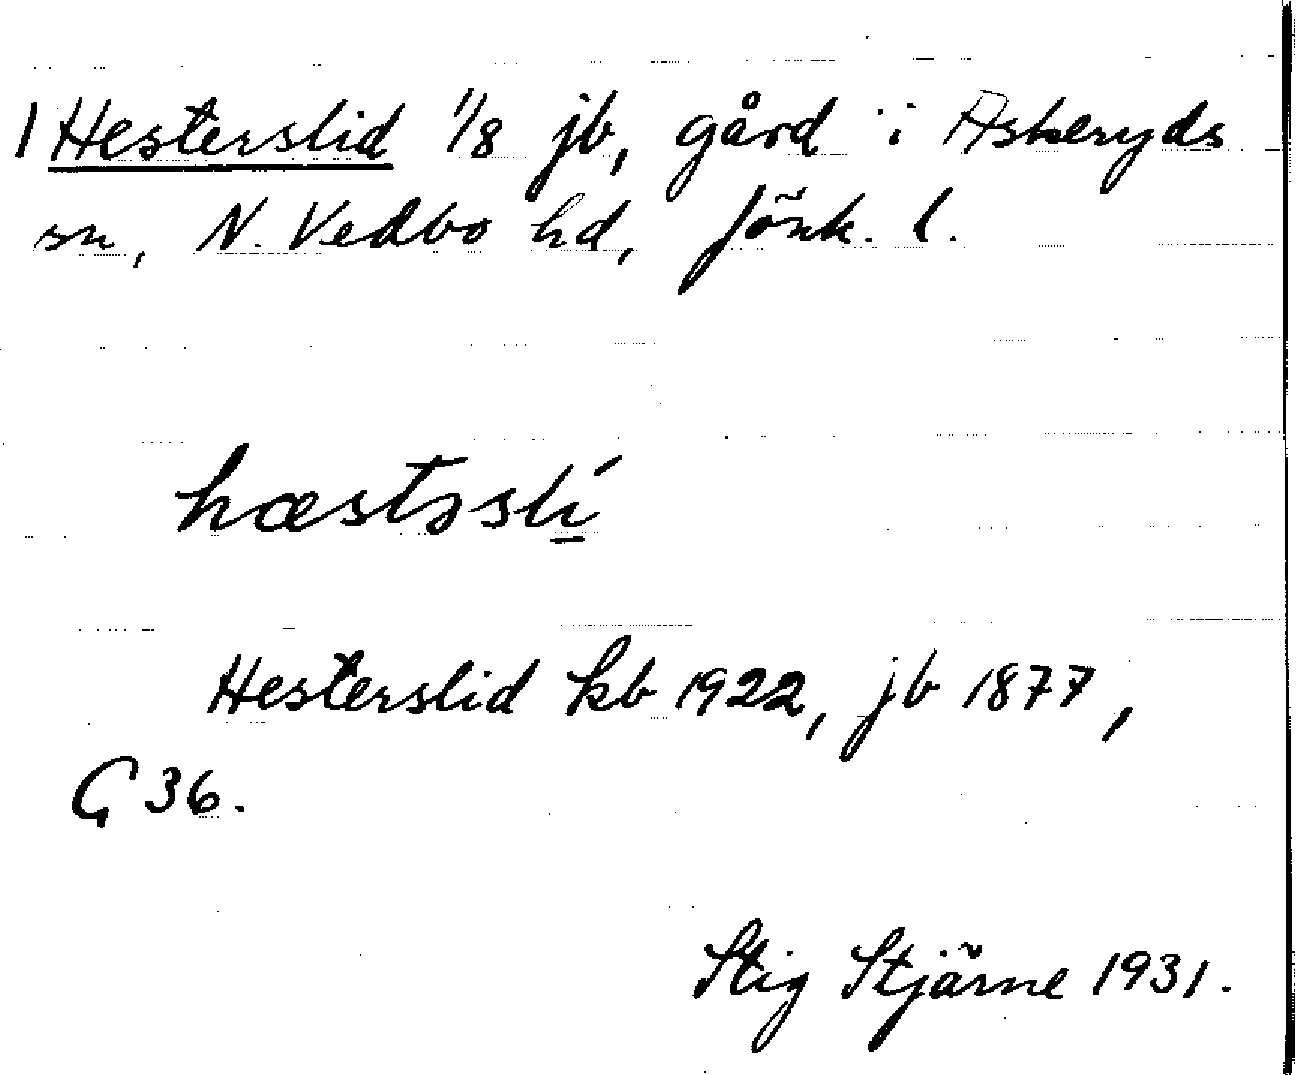 1 Hesterslid 1/8 jb, gård i Askeryds
sn, N. Vedbo hd, Jönk. l.
hæstəslí
Hesterslid kb 1922, jb 1877,
G 36.
Stig Stjärne 1931.